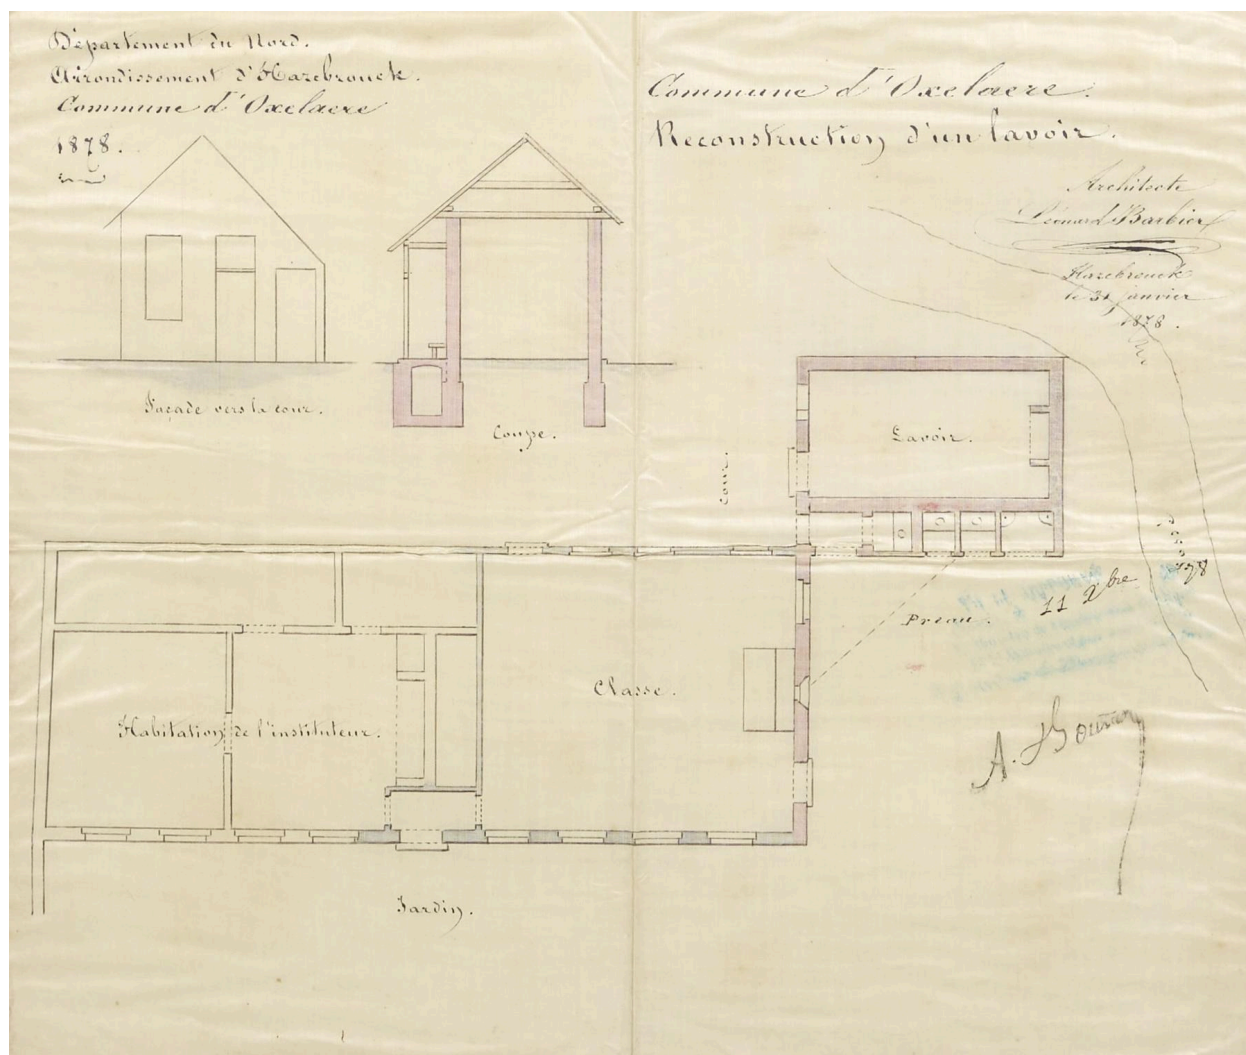 Département du Nord.
Arrondissement d'Hazebrouck.
Commune d'Oxelaere
1878.
Commune d'Oxelaere.
Reconstruction d'un lavoir.
Architecte
Léonard Barbier
Hazebrouck
le 31 janvier
1878.
Façade vers la cour.
Coupe.
Cour.
Lavoir.
Préau.
11 Xbre
Classe.
Habitation de l'instituteur.
Jardin.